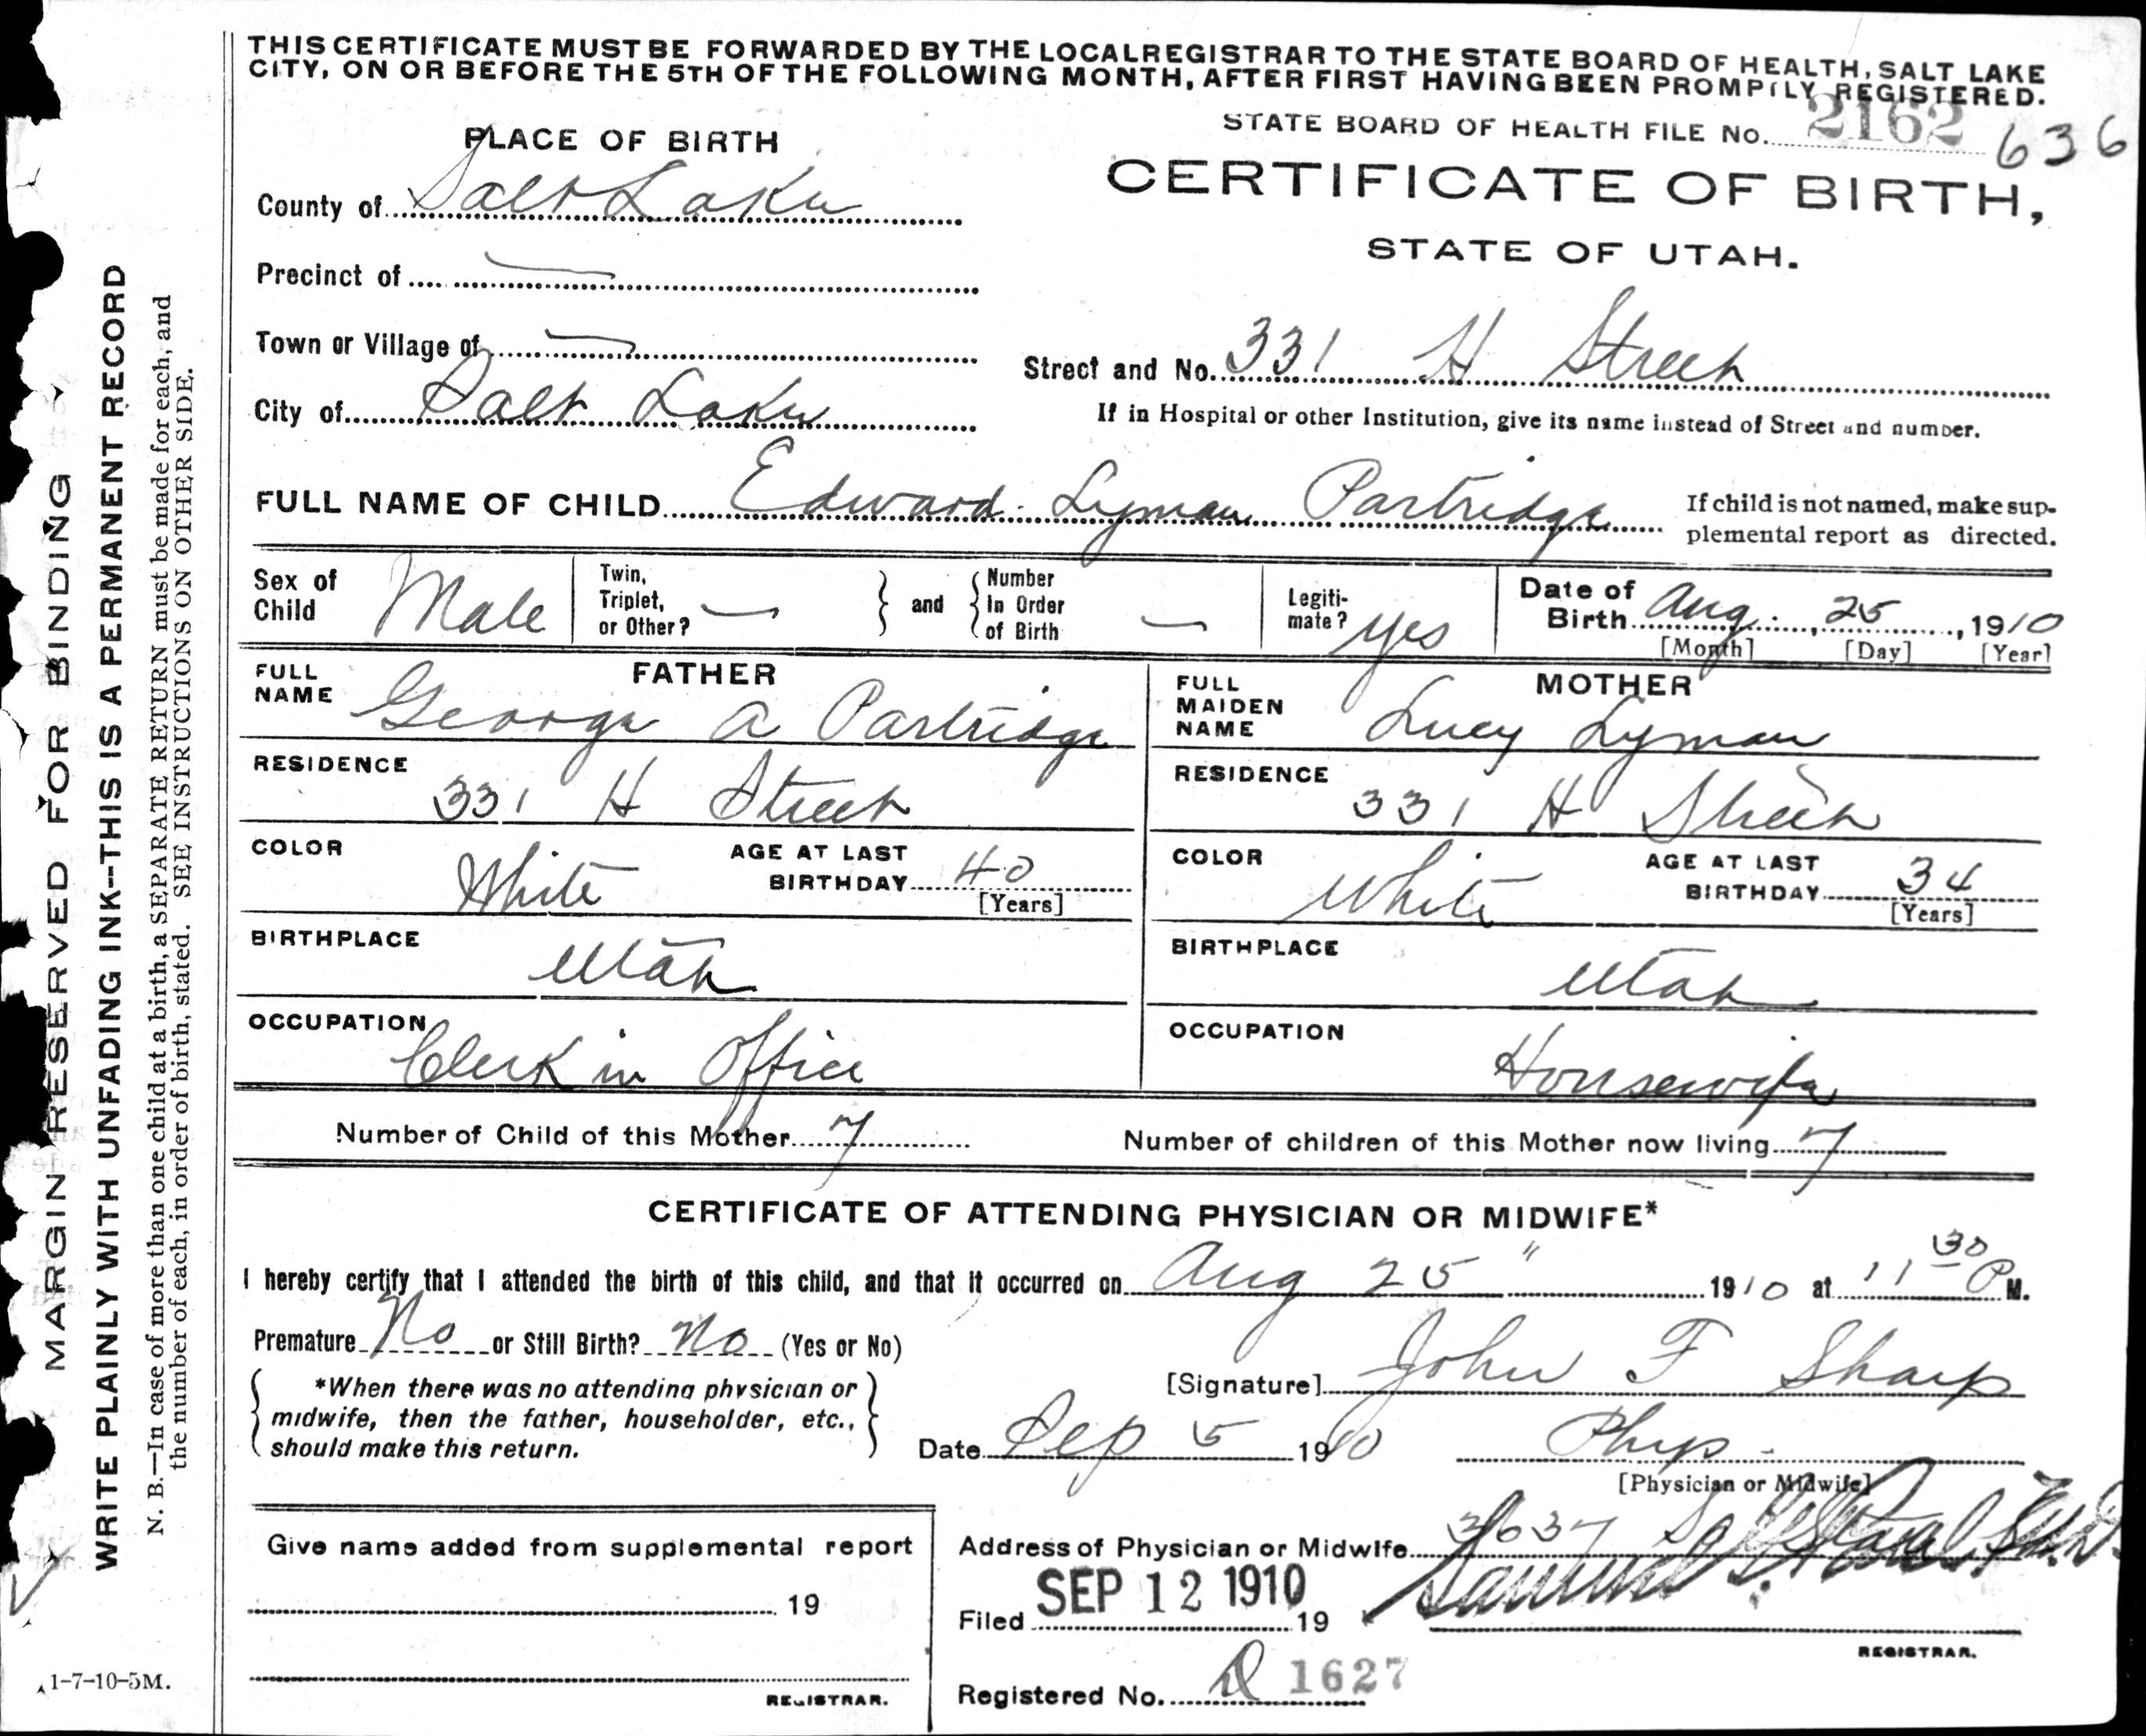 THIS CERTIFICATE MUST BE FORWARDED BY THE LOCAL REGISTRAR TO THE STATE BOARD OF HEALTH, SALT LAKE
CITY, ON OR BEFORE THE 5TH OF THE FOLLOWING MONTH, AFTER FIRST HAVING BEEN PROMPTLY REGISTERED.
STATE BOARD OF HEALTH FILE No. 2162 636
PLACE OF BIRTH
CERTIFICATE OF BIRTH,
STATE OF UTAH.
County of Salt Lake
Precinct of —
Town or Village of —
Street and No. 331 H Street
City of Salt Lake
If in Hospital or other Institution, give its name instead of Street and number.
FULL NAME OF CHILD Edward Lyman Partridge
If child is not named, make sup-
plemental report as directed.
Sex of Child Male
Twin, Triplet, or Other? —
and
Number In Order of Birth —
Legiti-mate? Yes
Date of Birth Aug. 25, 1910
[Month] [Day] [Year]
FATHER
FULL NAME George A Partridge
RESIDENCE
331 H Street
COLOR White
AGE AT LAST BIRTHDAY 40
[Years]
BIRTHPLACE
Utah
OCCUPATION
Clerk in Office
MOTHER
FULL MAIDEN NAME Lucy Lyman
RESIDENCE
331 H Street
COLOR White
AGE AT LAST BIRTHDAY 34
[Years]
BIRTHPLACE
Utah
OCCUPATION
Housewife
Number of Child of this Mother 7
Number of children of this Mother now living 7
CERTIFICATE OF ATTENDING PHYSICIAN OR MIDWIFE*
I hereby certify that I attended the birth of this child, and that it occurred on Aug 25" 1910 at 11 30 P M.
Premature No or Still Birth? No (Yes or No)
*When there was no attending physician or
midwife, then the father, householder, etc.,
should make this return.
[Signature] John F Sharp
Date Sep 5 1910
Phys.
[Physician or Midwife]
Give name added from supplemental report
19
REGISTRAR.
Address of Physician or Midwife
Filed SEP 12 1910 19
REGISTRAR.
Registered No. D 1627
MARGIN RESERVED FOR BINDING
WRITE PLAINLY WITH UNFADING INK--THIS IS A PERMANENT RECORD
N. B.—In case of more than one child at a birth, a SEPARATE RETURN must be made for each, and
the number of each, in order of birth, stated. SEE INSTRUCTIONS ON OTHER SIDE.
1-7-10-5M.